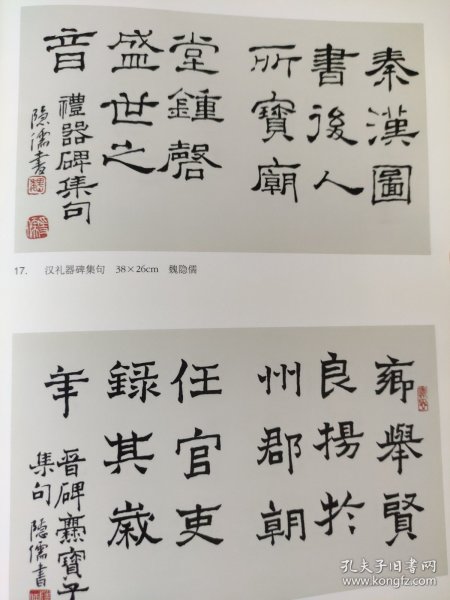 秦漢圖
書後人
所寶廟
堂鍾磬
盛世之
音
禮器碑集句
隐儒書
17. 汉礼器碑集句 38×26cm 魏隐儒
鄉舉賢
良揚於
州郡朝
任官吏
錄其歲
年
晉碑爨寶子
集句 隐儒書
孔夫子旧书网
www.kongfz.com